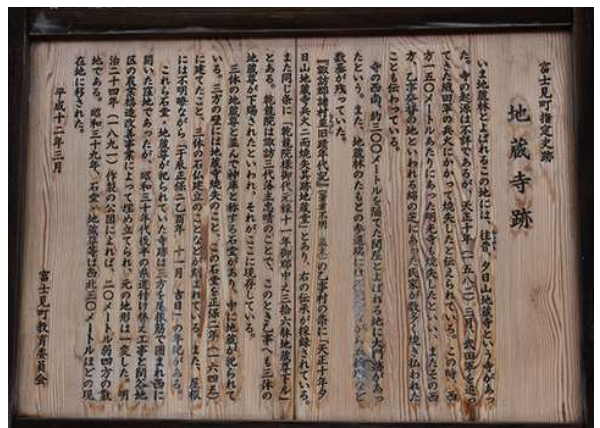 富士見町指定史跡
地蔵寺跡
いま地蔵林とよばれるこの地には、往昔 夕日山地蔵寺という寺があっ
た。寺の起源は不詳であるが、天正十年(一五八二)三月、武田軍を追っ
てきた織田軍の兵火にかかって焼失したと伝えられている。この時、西
方一五〇メートルあたりにあった明光寺も焼失したといい、またその西
方、乙事発祥の地といわれる綿の芝にあった民家が数多く焼き払われた
ことも伝わっている。
寺の西南、約三〇〇メートルを隔てた関屋とよばれる地に大門跡があっ
たという。また、地蔵林のたもとの参道端には
数基が残っていた。
『諏訪郡諸村並旧蹟年代記』の乙事村の条に「天正十年夕
日山地蔵寺兵火ニ而焼失其跡地蔵堂」とあり、右の伝承が採録されている。
また同じ条に「乾龍院様御代元禄十一年御郡中え三拾六体地蔵尊下ル」
とある。乾龍院は諏訪三代藩主忠晴のことで、このとき乙事へも三体の
地蔵尊が下賜されたといわれ、それがここに現存している。
三体の地蔵尊と並んで神庫と称する石堂があり、中に地蔵が祀られて
いる。三方の壁には地蔵寺焼失のこと、この石堂を正保二年(一六四五)
に建てたこと、三体の石仏建立のことなどが刻まれている。また、屋根
には不明瞭ながら「于時正保二乙酉年 十一月 吉日」の年紀がある。
これら石堂・地蔵尊が祀られていた寺跡は三方を尾根筋で囲まれ西に
開いた窪地であったが、昭和三十年代後半の県道付け替え工事と関谷地
区の農業構造改善事業によって埋め立てられ、元の地形は一変した。明
治二十四年(一八九一)作製の公図によれば、二〇メートル弱四方の敷
地である。昭和三十九年、石堂・地蔵尊等は西北三〇メートルほどの現
在地に移された。
平成十二年三月
富士見町教育委員会